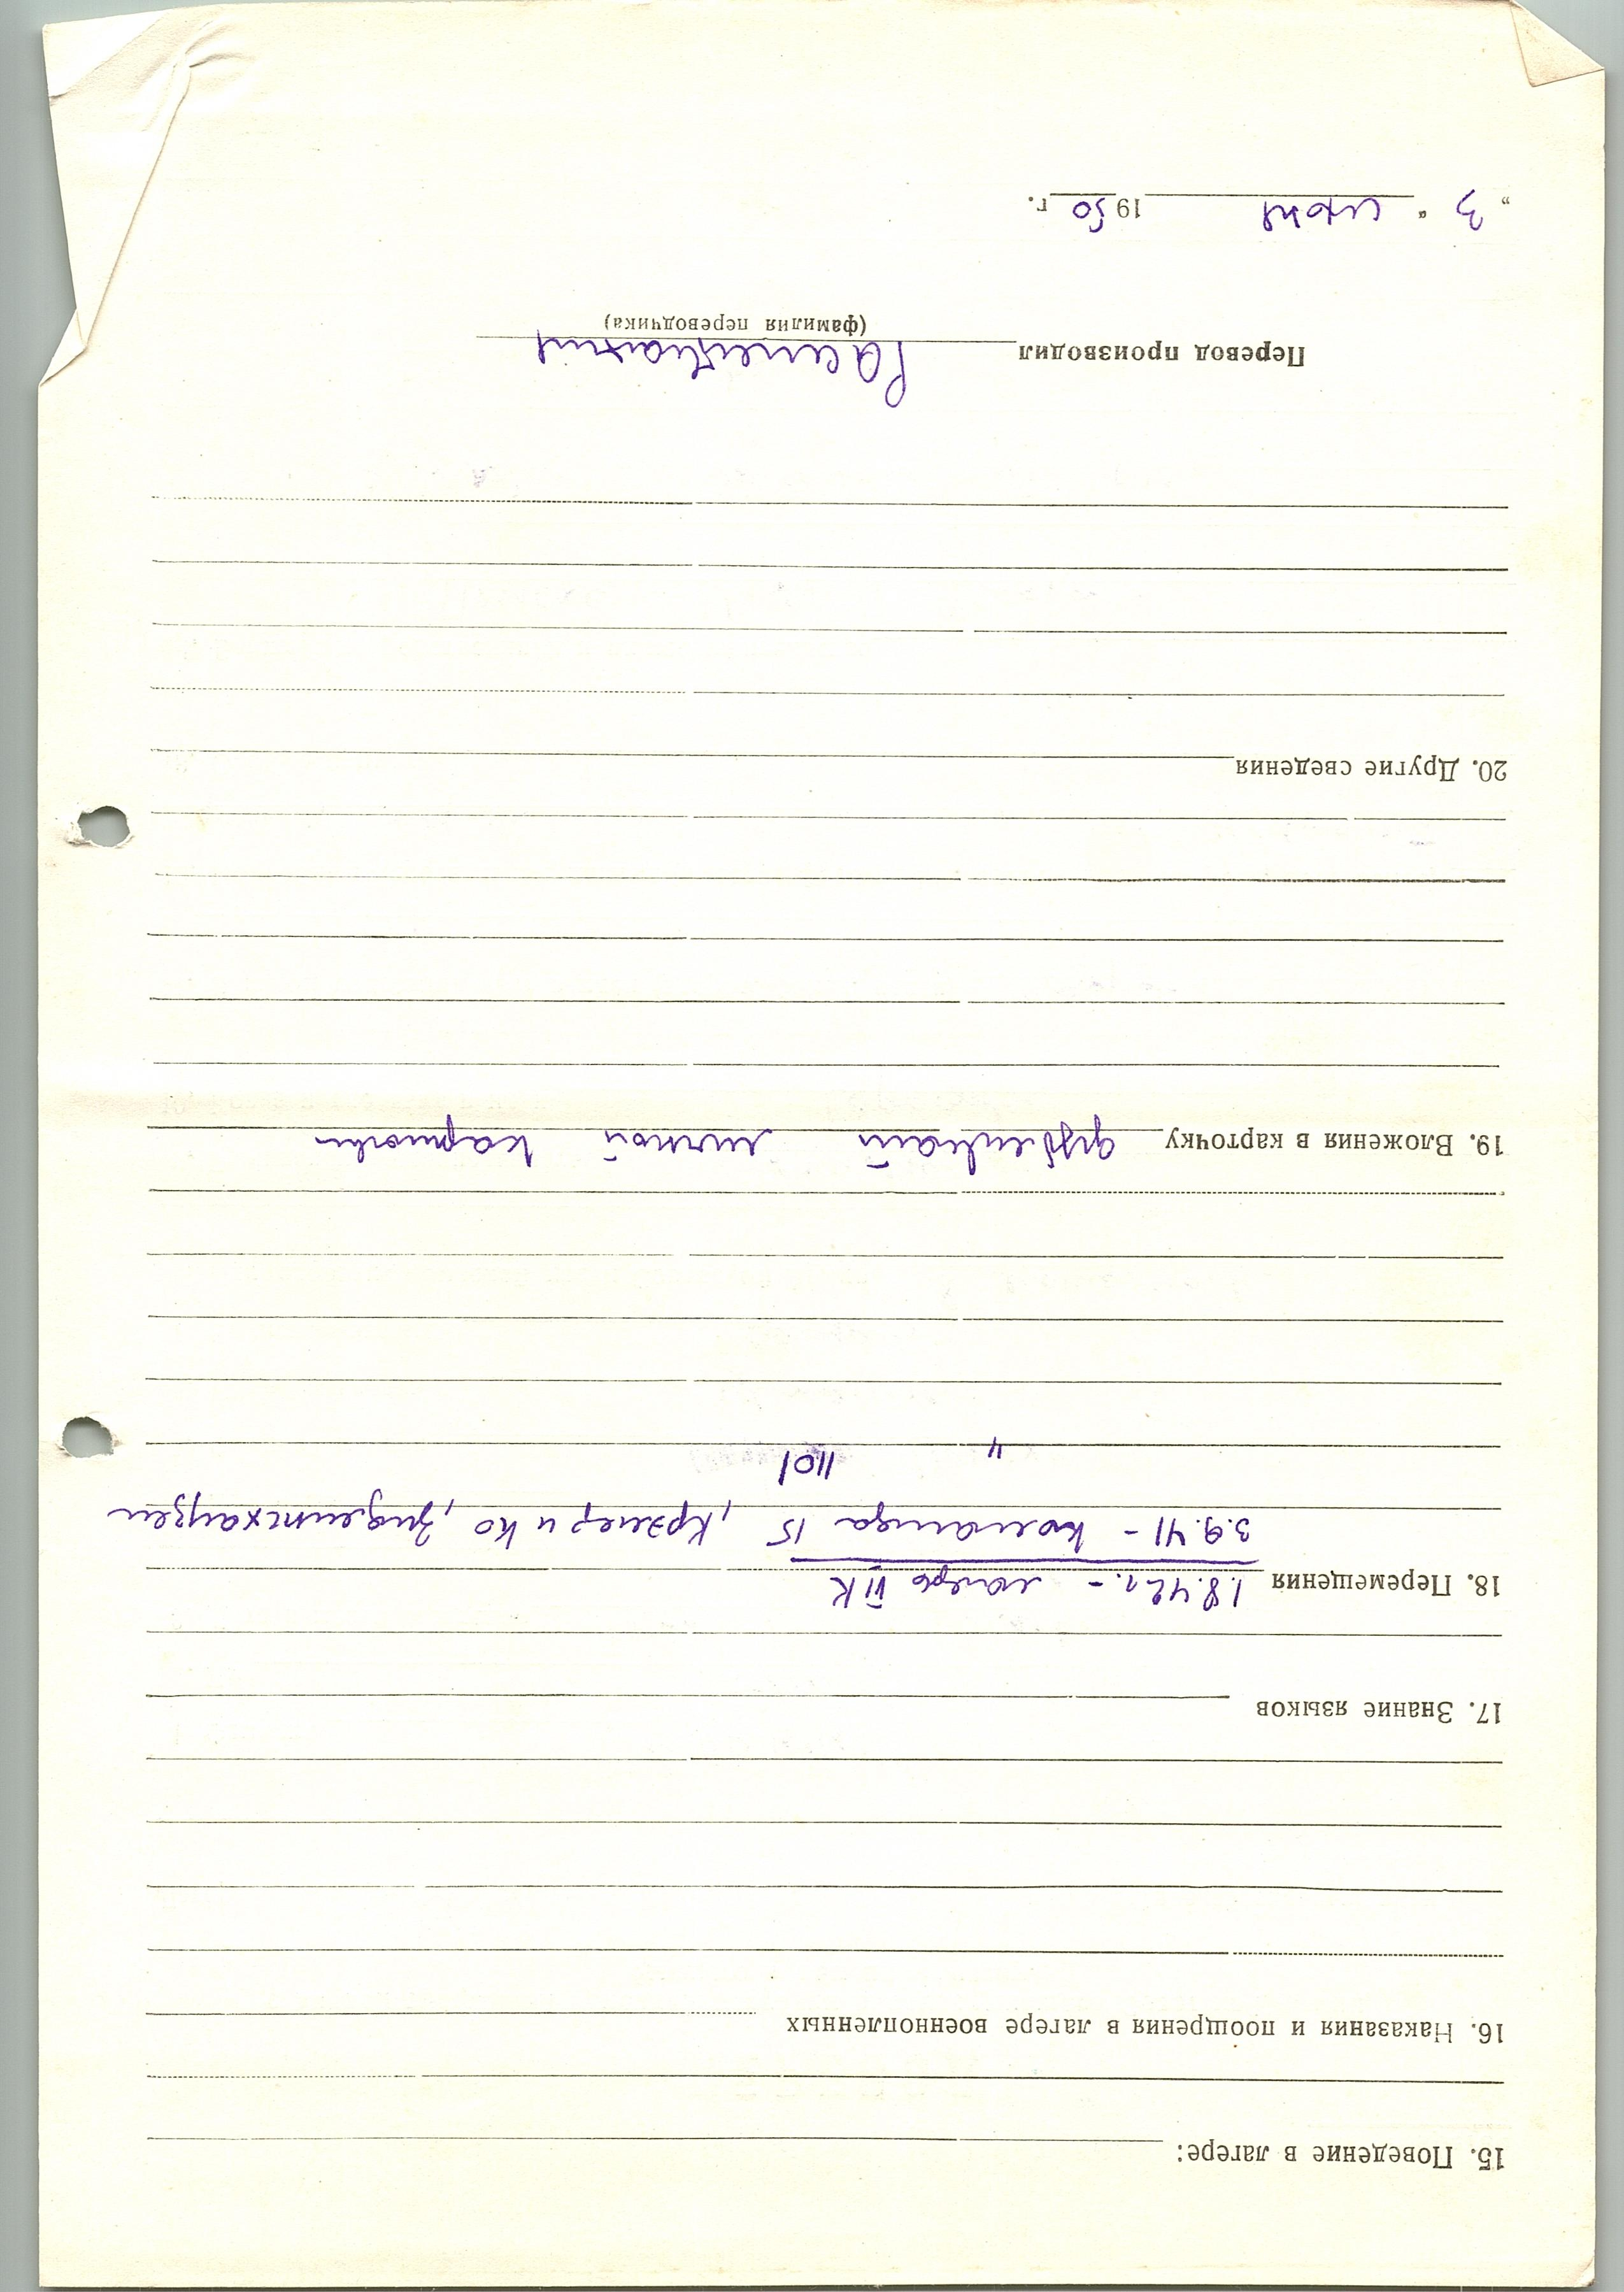 15. Поведение в лагере:
16. Наказания и поощрения в лагере военнопленных
17. Знание языков
18. Перемещения 1.8.42 г. – лагерь VI К
3.9.41 – команда 15, Крэмер и Ко, Зиденихаузен
" 1101
19. Вложения в карточку дубликат личной карточки
20. Другие сведения
Перевод производил
(фамилия переводчика)
„ 3 “ июня 1950 г.